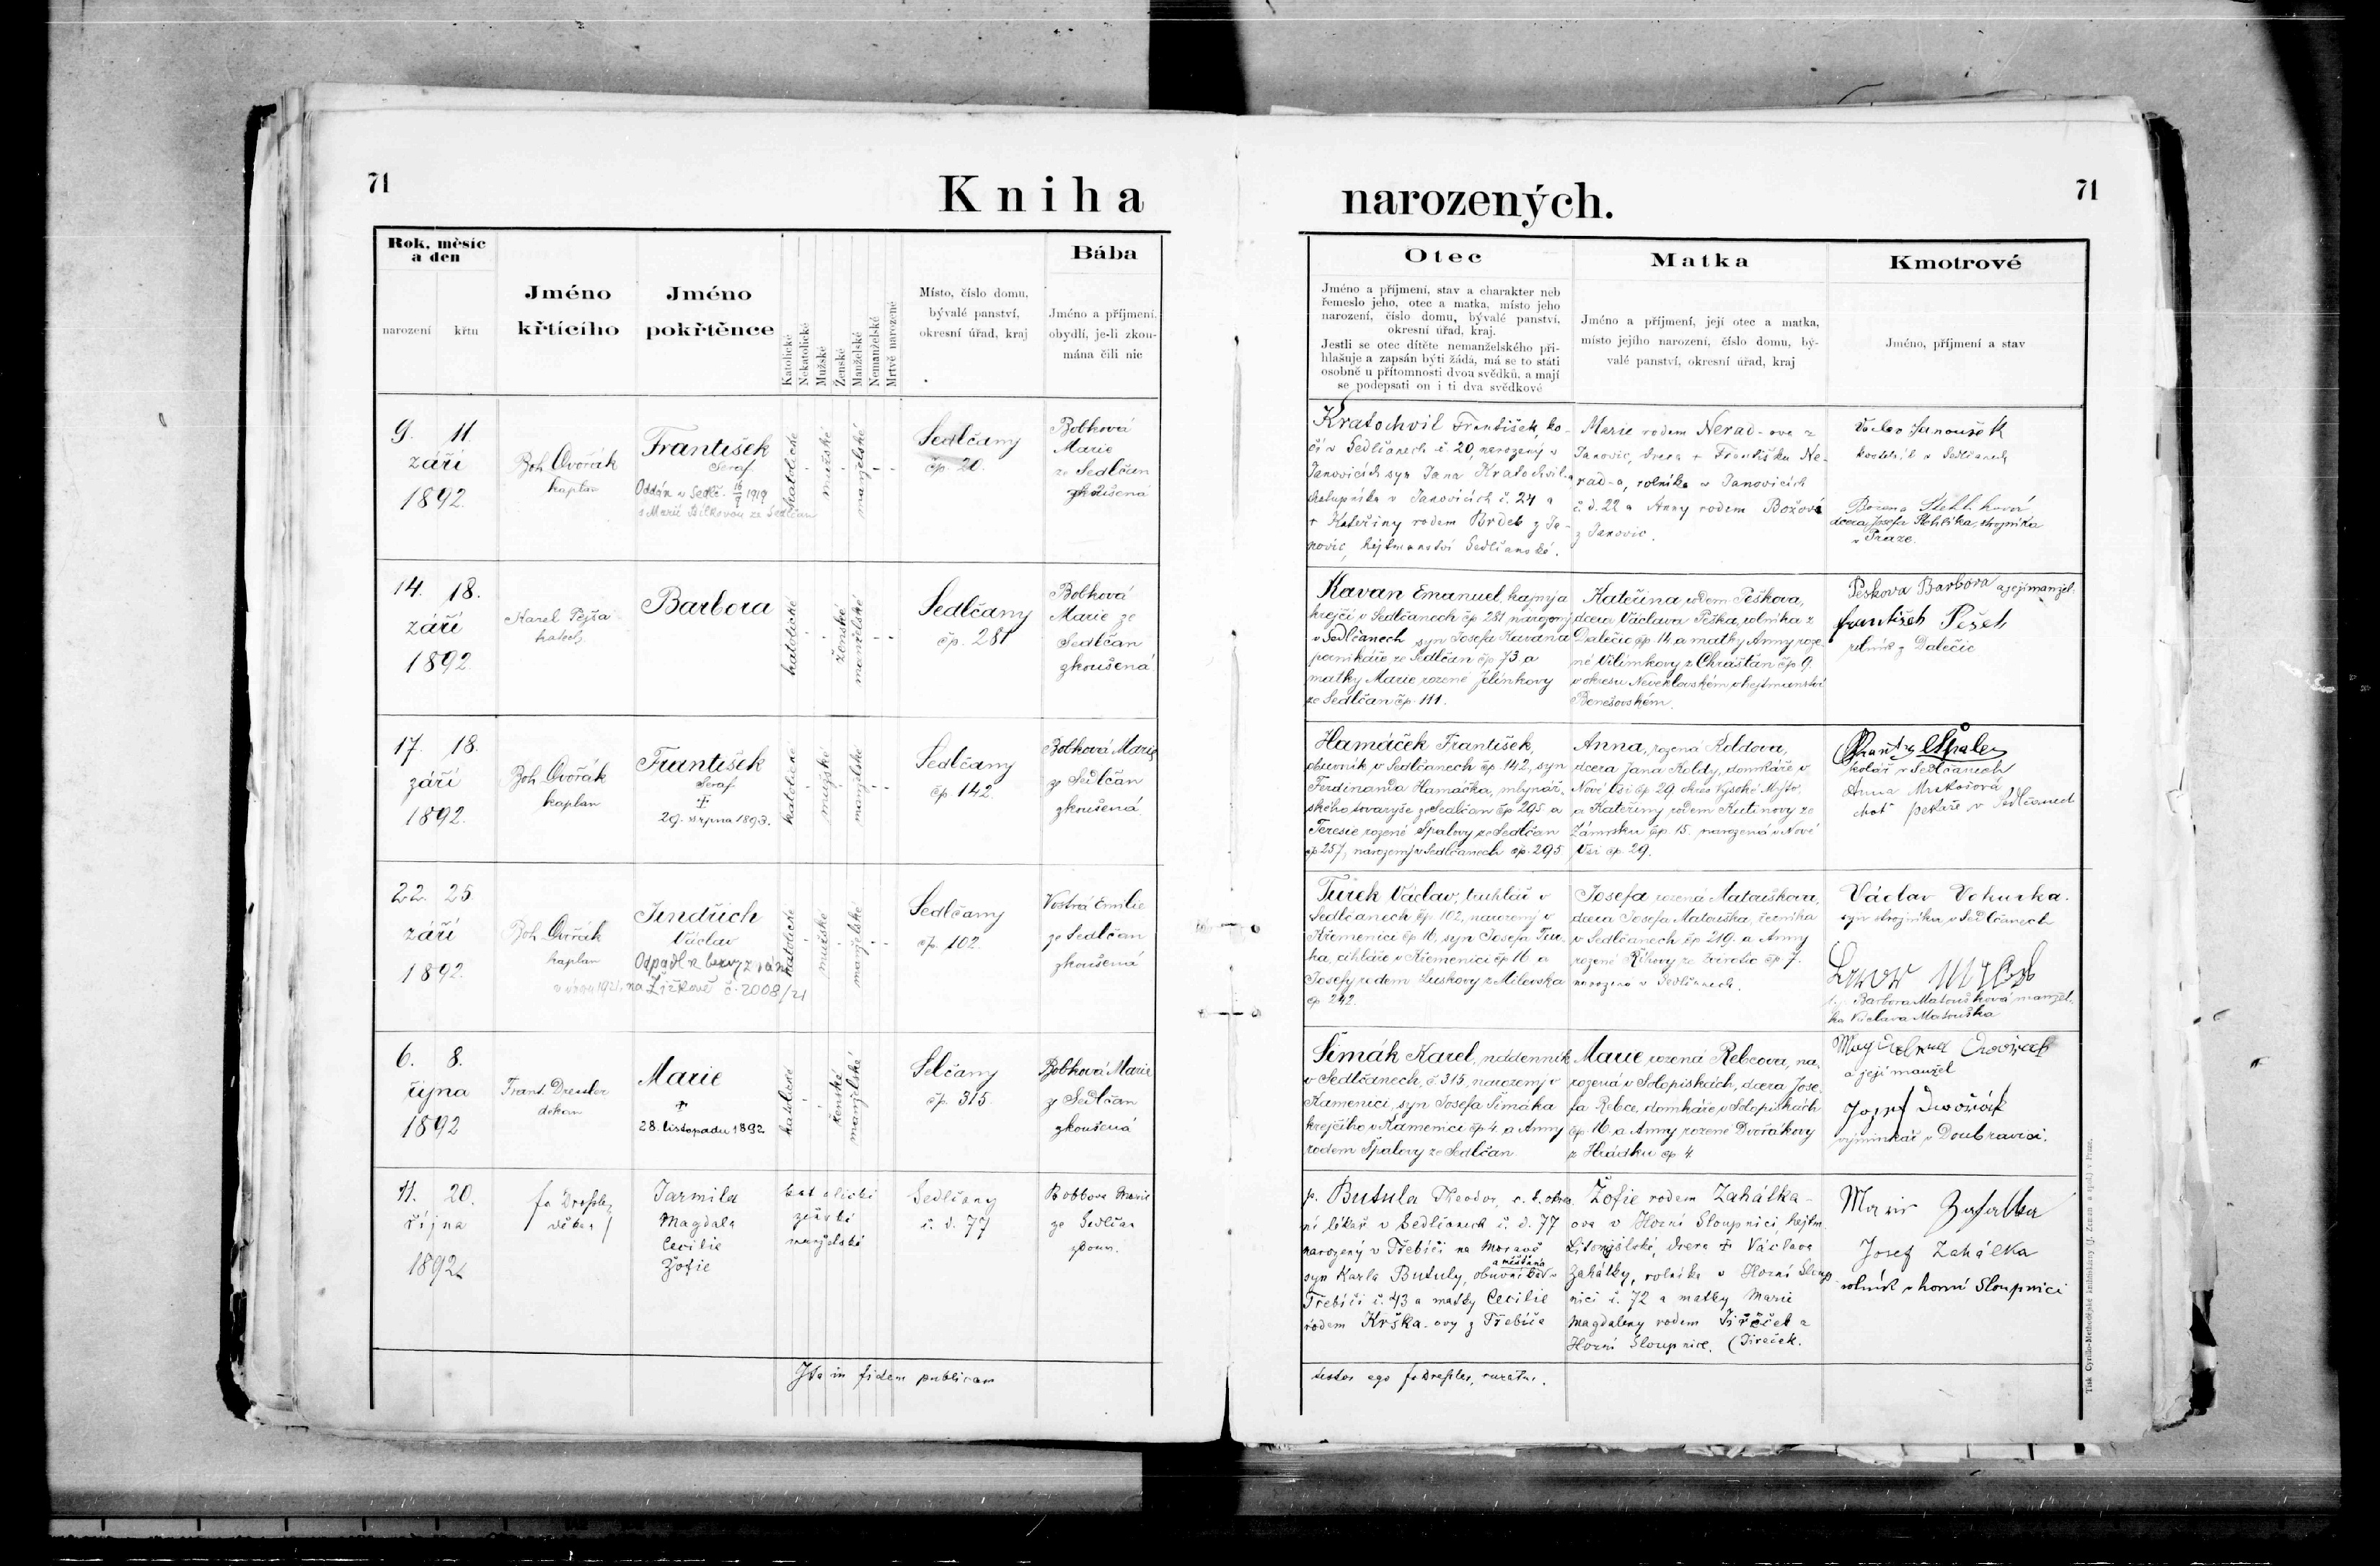 71
Kniha
narozených.
71
Rok, měsíc
a den
narození
křtu
Jméno
křtícího
Jméno
pokřtěnce
Katolické
Nekatolické
Mužské
Ženské
Manželské
Nemanželské
Mrtvě narozené
Místo, číslo domu,
bývalé panství,
okresní úřad, kraj
Bába
Jméno a příjmení,
obydlí, je-li zkou-
mána čili nic
Otec
Jméno a příjmení, stav a charakter neb
řemeslo jeho, otec a matka, místo jeho
narození, číslo domu, bývalé panství,
okresní úřad, kraj.
Jestli se otec dítěte nemanželského při-
hlašuje a zapsán býti žádá, má se to státi
osobně u přítomnosti dvou svědků, a mají
se podepsati on i ti dva svědkové
Matka
Jméno a příjmení, její otec a matka,
místo jejího narození, číslo domu, bý-
valé panství, okresní úřad, kraj
Kmotrové
Jméno, příjmení a stav
9. 11.
září
1892.
Boh. Dvořák
kaplan
František
Seraf.
Oddán v Sedlč. 1919
s Marií Bílkovou ze Sedlčan
katolické
mužské
manželské
Sedlčany
čp. 20.
Bobková
Marie
ze Sedlčan
zkoušená
Kratochvil František, ko-
čí v Sedlčanech č 20, narozený v
Janovicích syn Jana Kratochvil-a
chalupníka v Janovicích č. 24 a
+ Kateřiny rodem Brdek z Ja-
novic, hejtmanství Sedlčanské.
Marie rodem Nerad-ova z
Janovic, dcera + Františka Ne-
rad-a, rolníka v Janovicích
č. d. 22 a Anny rodem Božová
z Janovic.
Václav Janoušek
kostelník v Sedlčanech
Božena Stehlíková
dcera Josefa Stehlíka, strojníka
v Praze.
14. 18.
září
1892
Karel Pejša
katech.
Barbora
katolické
ženské
manželské
Sedlčany
čp. 281
Bobková
Marie ze
Sedlčan
zkoušená
Kavan Emanuel, hajný a
krejčí v Sedlčanech čp 281 narozený
v Sedlčanech syn Josefa Kavana
perníkáře ze Sedlčan čp 73 a
matky Marie rozené Jelínkovy
ze Sedlčan čp. 111.
Kateřina rodem Peškova,
dcera Václava Peška, rolníka z
Dalečic čp. 14, a matky Anny roze-
né Vilímkovy z Chrášťan čp 9.
v okresu Neveklovském, v hejtmanství
Benešovském.
Peškova Barbora a její manžel
František Pešek
rolník z Dalečic
17. 18.
září
1892.
Boh. Dvořák
kaplan
František
Seraf.
†
29. srpna 1893.
katolické
mužské
manželské
Sedlčany
čp 142.
Bobková Marie
ze Sedlčan
zkoušená
Hamáček František,
obuvník v Sedlčanech čp. 142, syn
Ferdinanda Hamáčka, mlynář-
ského tovaryše ze Sedlčan čp 295 a
Teresie rozené Špalovy ze Sedlčan
čp 257, narozený v Sedlčanech čp. 295
Anna, rozená Koldova,
dcera Jana Koldy, domkáře v
Nové Vsi čp 29, okres Vysoké Mýto
a Kateřiny rodem Kulinovy ze
Zámrsku čp. 15. narozená v Nové
Vsi čp 29.
kolář v Sedlčanech
Anna
choť pekaře v Sedlčanech
22. 25.
září
1892.
Boh. Dvořák
kaplan
Jindřich
Václav
Odpadl k bezvyznání
v únoru 1921, na Žižkově č. 2008/21
katolické
mužské
manželské
Sedlčany
čp. 102.
Vostrá Emilie
ze Sedlčan
zkoušená
Turek Václav, truhlář v
Sedlčanech čp. 102, narozený v
Křemenici čp 16, syn Josefa Tur-
ka, cihláře v Křemenici čp 16 a
Josefy rodem Luskovy z Milevska
čp 242.
Josefa rozená Matouškova,
dcera Josefa Matouška, řezníka
v Sedlčanech čp 219. a Anny
rozené Říhovy ze Zvírotic čp 7.
narozena v Sedlčanech.
Václav Vohurka.
syn strojníka v Sedlčanech
Barbora Matoušková manžel-
ka Václava Matouška
6. 8.
října
1892
Frant. Dressler
děkan
Marie
†
28. listopadu 1892.
katolické
ženské
manželské
Selčany
čp. 315.
Bobková Marie
ze Sedlčan
zkoušená
Šimák Karel, nádenník
v Sedlčanech, č. 315, narozený v
Kamenici, syn Josefa Šimáka
krejčího v Kamenici čp 4 a Anny
rodem Špalovy ze Sedlčan
Marie rozená Rebcova, na-
rozená v Solopiskách, dcera Jose-
fa Rebce, domkáře v Solopiskách
čp. 16 a Anny rozené Dvořákovy
z Hrádku čp 4.
Magdalena Dvořák
a její manžel
Josef Dvořák
výminkář v Doubravici.
11. 20.
října
1892
fr Dressler
děkan
Jarmila
Magdala
Cecilie
Žofie
katolické
ženské
manželské
Sedlčany
č. d. 77
Bobkova Marie
ze Sedlčan
zkouš.
p. Butula Theodor, c. k. okres-
ní lékař v Sedlčanech č. d. 77
narozený v Třebíči na Moravě
syn Karla Butuly, obuvníka a měšťana v
Třebíči č. 43 a matky Cecilie
rodem Krška-ovy z Třebíče
Žofie rodem Zahálka-
ova v Horní Sloupnici hejtm.
Litomyšlské, dcera + Václava
Zahálky, rolníka v Horní Sloup-
nici č. 72 a matky Marie
Magdaleny rodem Jireček z
Horní Sloupnice. (Jireček.
Marie Zahálka
Josef Zahálka
rolník v horní Sloupnici
Ita in fidem publicam
testor ego fr Dressler, curatus.
Tisk Cyrillo-Methodějské knihtiskárny (J. Zeman a spol.) v Praze.